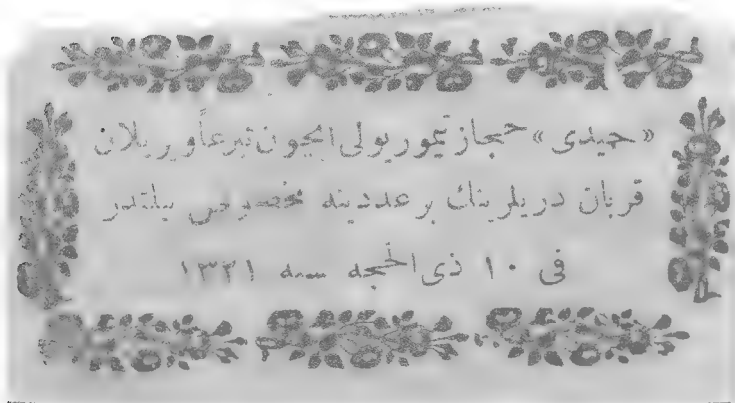 «حیدی» حجاز تیموریولی ایچون تبرعاً ویریلان
قربان دریلرینك بر عددینه مخصوص بیلتدر
فی ١٠ ذی الحجه سنه ١٣٢١